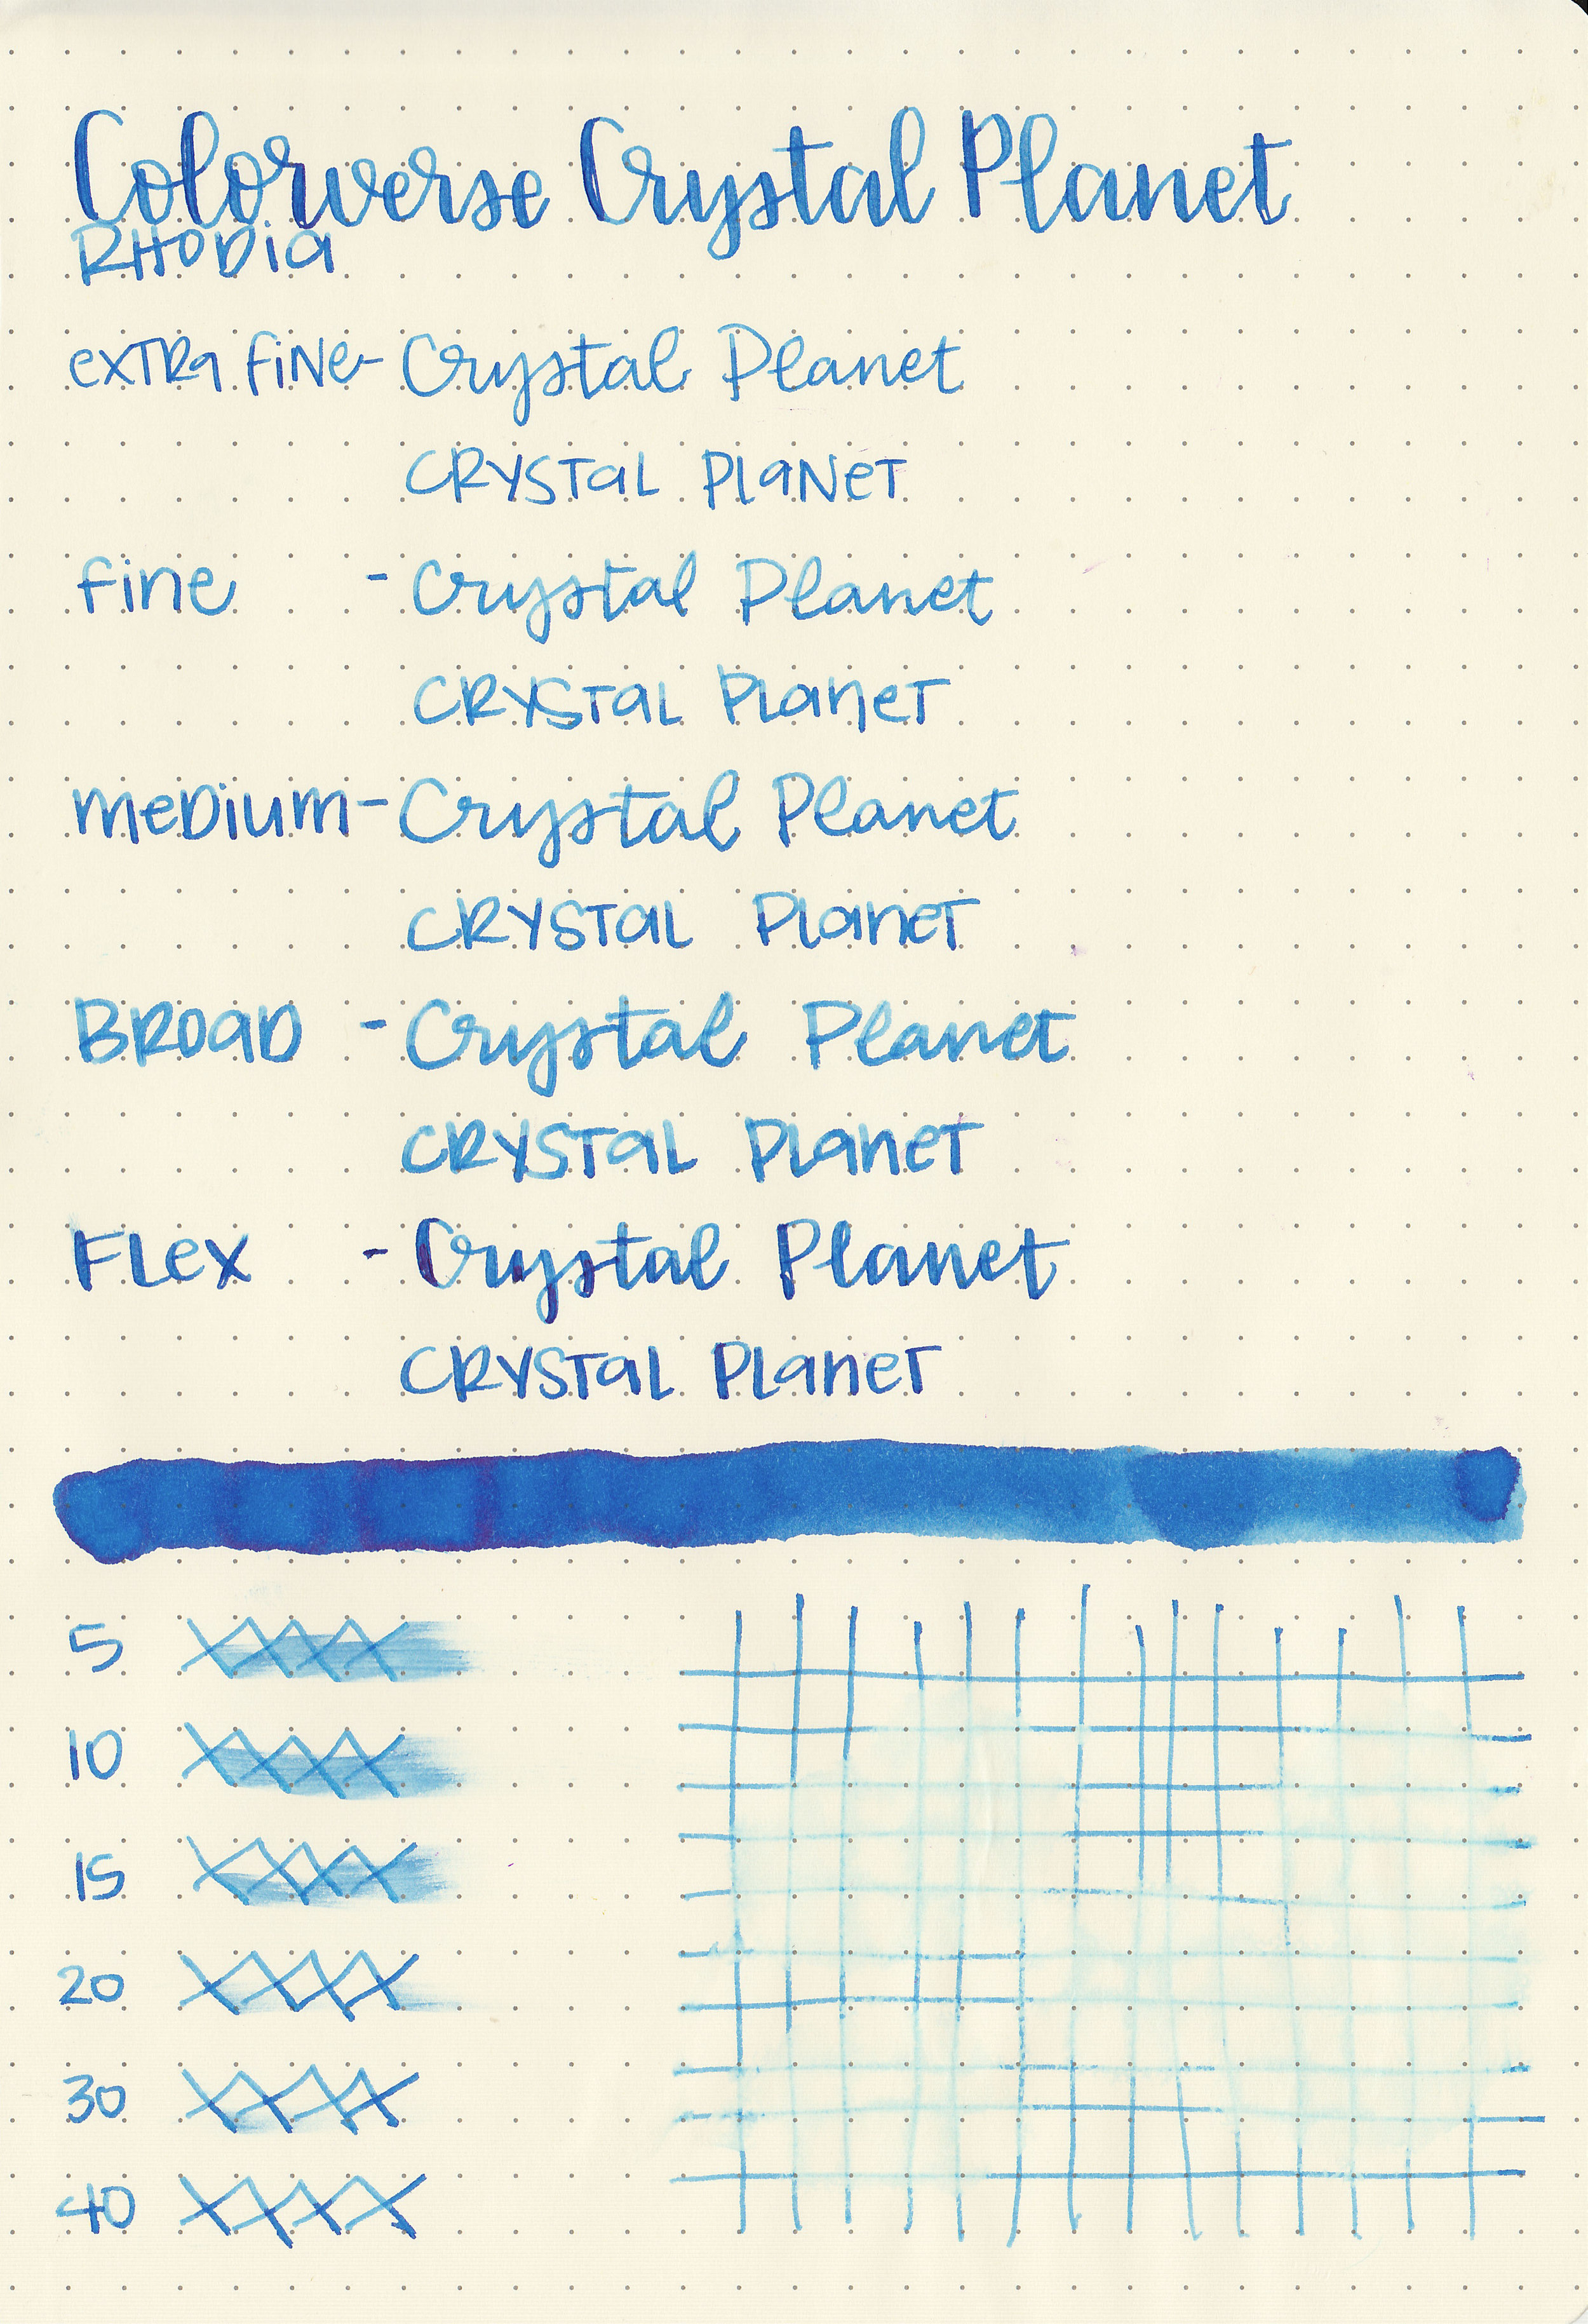 Colorverse Crystal Planet
RHODia
exTRa FiNe- Crystal Planet
CRYSTaL PlaNeT
Fine - Crystal Planet
CRYSTaL PLaneT
meDium- Crystal Planet
CRYSTaL PlaneT
BROaD - Crystal Planet
CRYSTaL PLaneT
FLex - Crystal Planet
CRYSTaL PLaneT
5
10
15
20
30
40